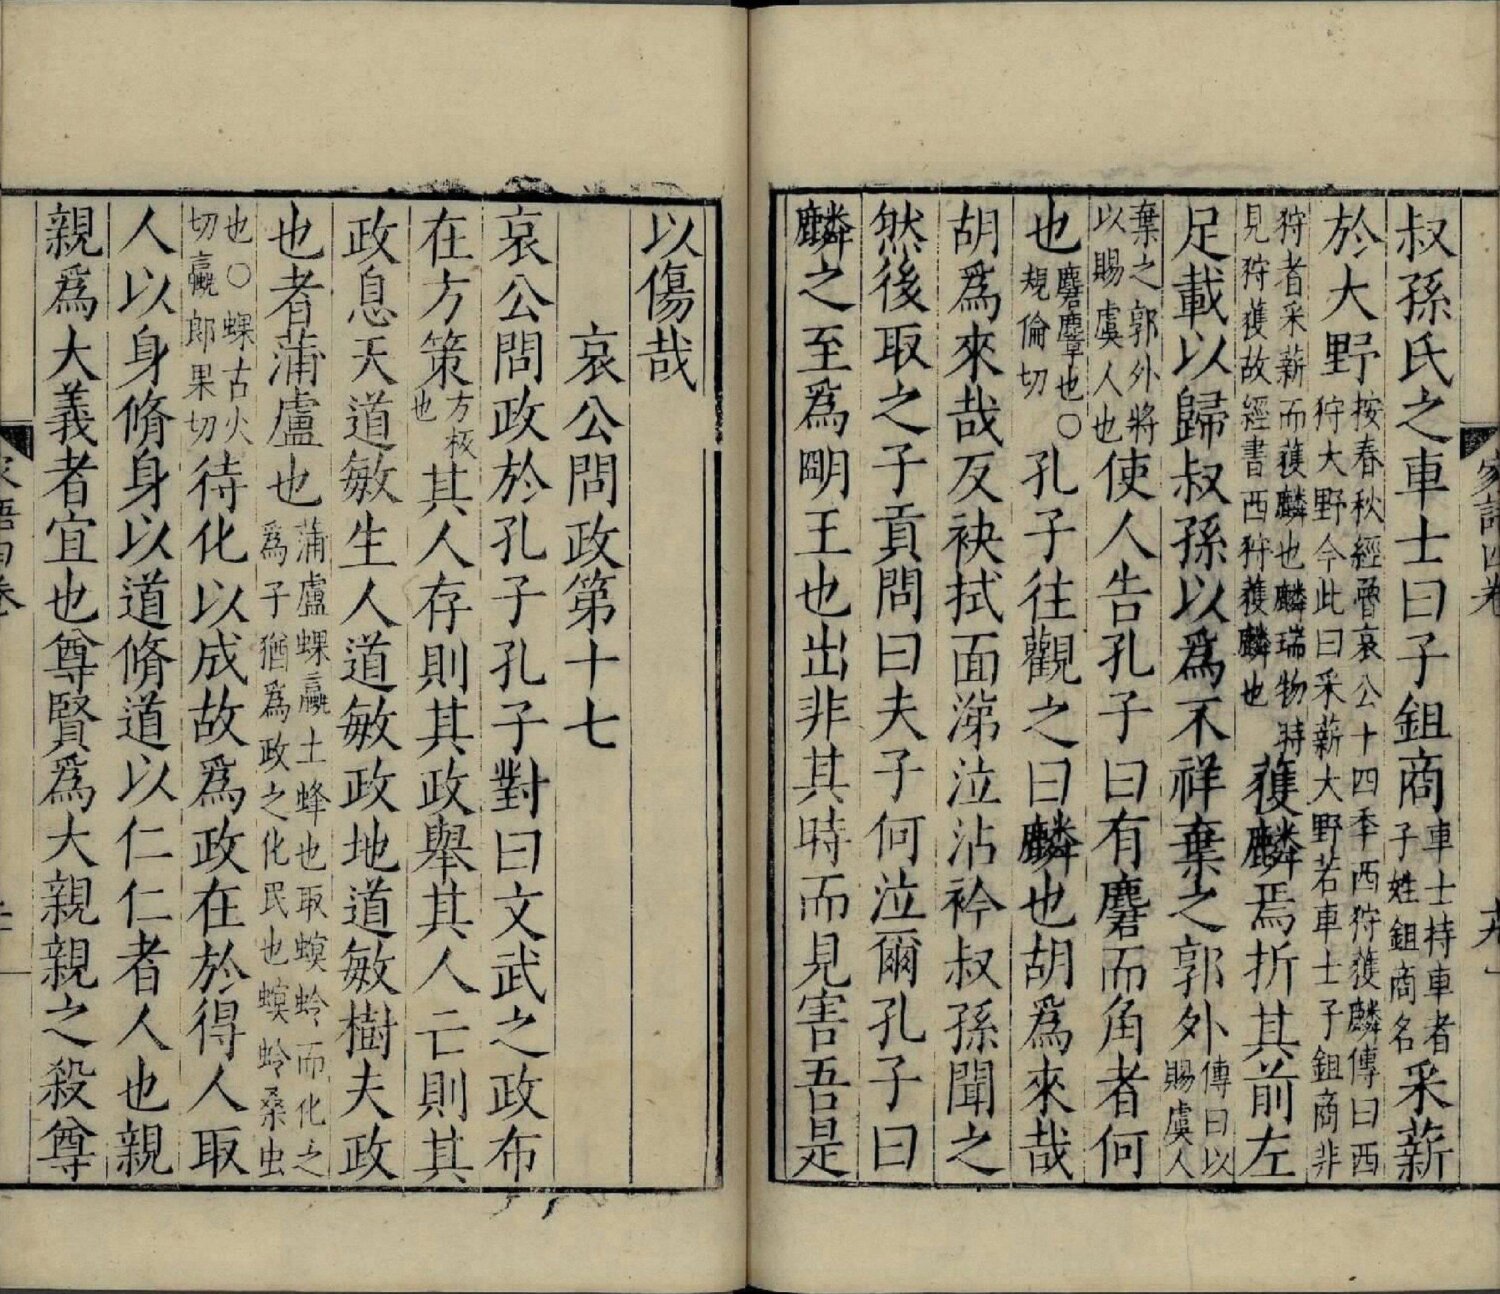 叔孫氏之車士曰子鉏商車士持車者子姓鉏商名采薪
於大野按春秋經魯哀公十四年西狩獲麟傳曰西狩大野今此曰采薪大野若車士子鉏商非
狩者采薪而獲麟也麟瑞物時見狩獲故經書西狩獲麟也獲麟焉折其前左
足載以歸叔孫以為不祥棄之郭外傳曰以賜虞人
棄之郭外將以賜虞人也使人告孔子曰有麏而角者何
也麏麞也○規倫切孔子往觀之曰麟也胡為來哉
胡為來哉反袂拭面涕泣沾衿叔孫聞之
然後取之子貢問曰夫子何泣爾孔子曰
麟之至為明王也出非其時而見害吾是
以傷哉
哀公問政第十七
哀公問政於孔子孔子對曰文武之政布
在方策方板也其人存則其政舉其人亡則其
政息天道敏生人道敏政地道敏樹夫政
也者蒲盧也蒲盧蜾蠃土蜂也取螟蛉而化之為子猶為政之化民也螟蛉桑虫
也○蜾古火切蠃郎果切待化以成故為政在於得人取
人以身脩身以道脩道以仁仁者人也親
親為大義者宜也尊賢為大親親之殺尊
家語四卷
家語四卷